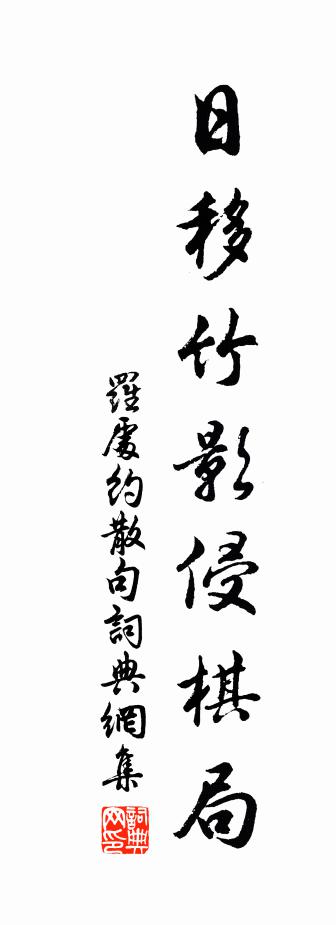 日移竹影侵棋局
羅處約散句詞典網集
詞典網印